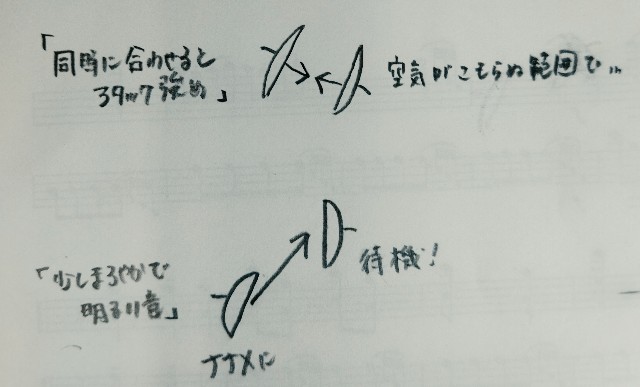 「同時に合わせると
タイプ強め」
空気がこもらぬ範囲で…
「少しまろやかで
明るい音」
待機!
ナナメに